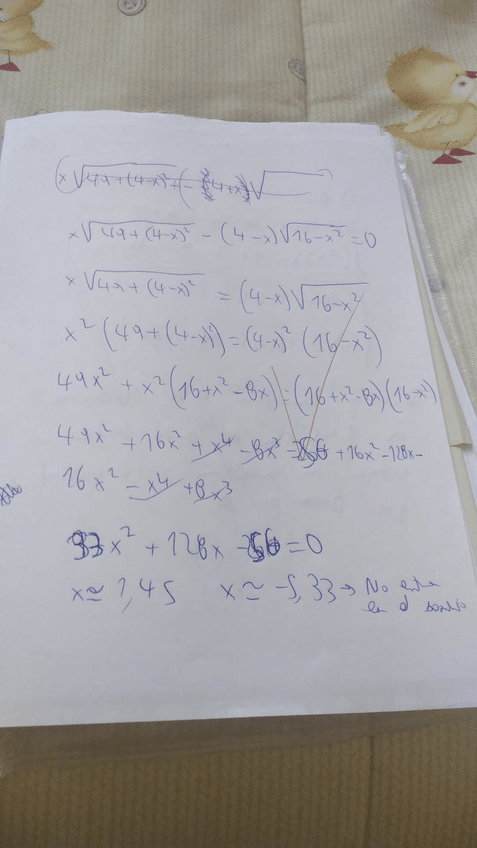 x√(49+(4-x)²) - (4-x)√(16-x²) = 0
x√(49+(4-x)²) = (4-x)√(16-x²)
x²(49+(4-x)²) = (4-x)²(16-x²)
49x² + x²(16+x²-8x) = (16+x²-8x)(16-x²)
49x² + 16x² + x⁴ - 8x³ = 256 + 16x² - 128x -
16x² - x⁴ + 8x³
x² + 128x - 256 = 0
x ≃ 1,45 x ≃ -5,33 → No